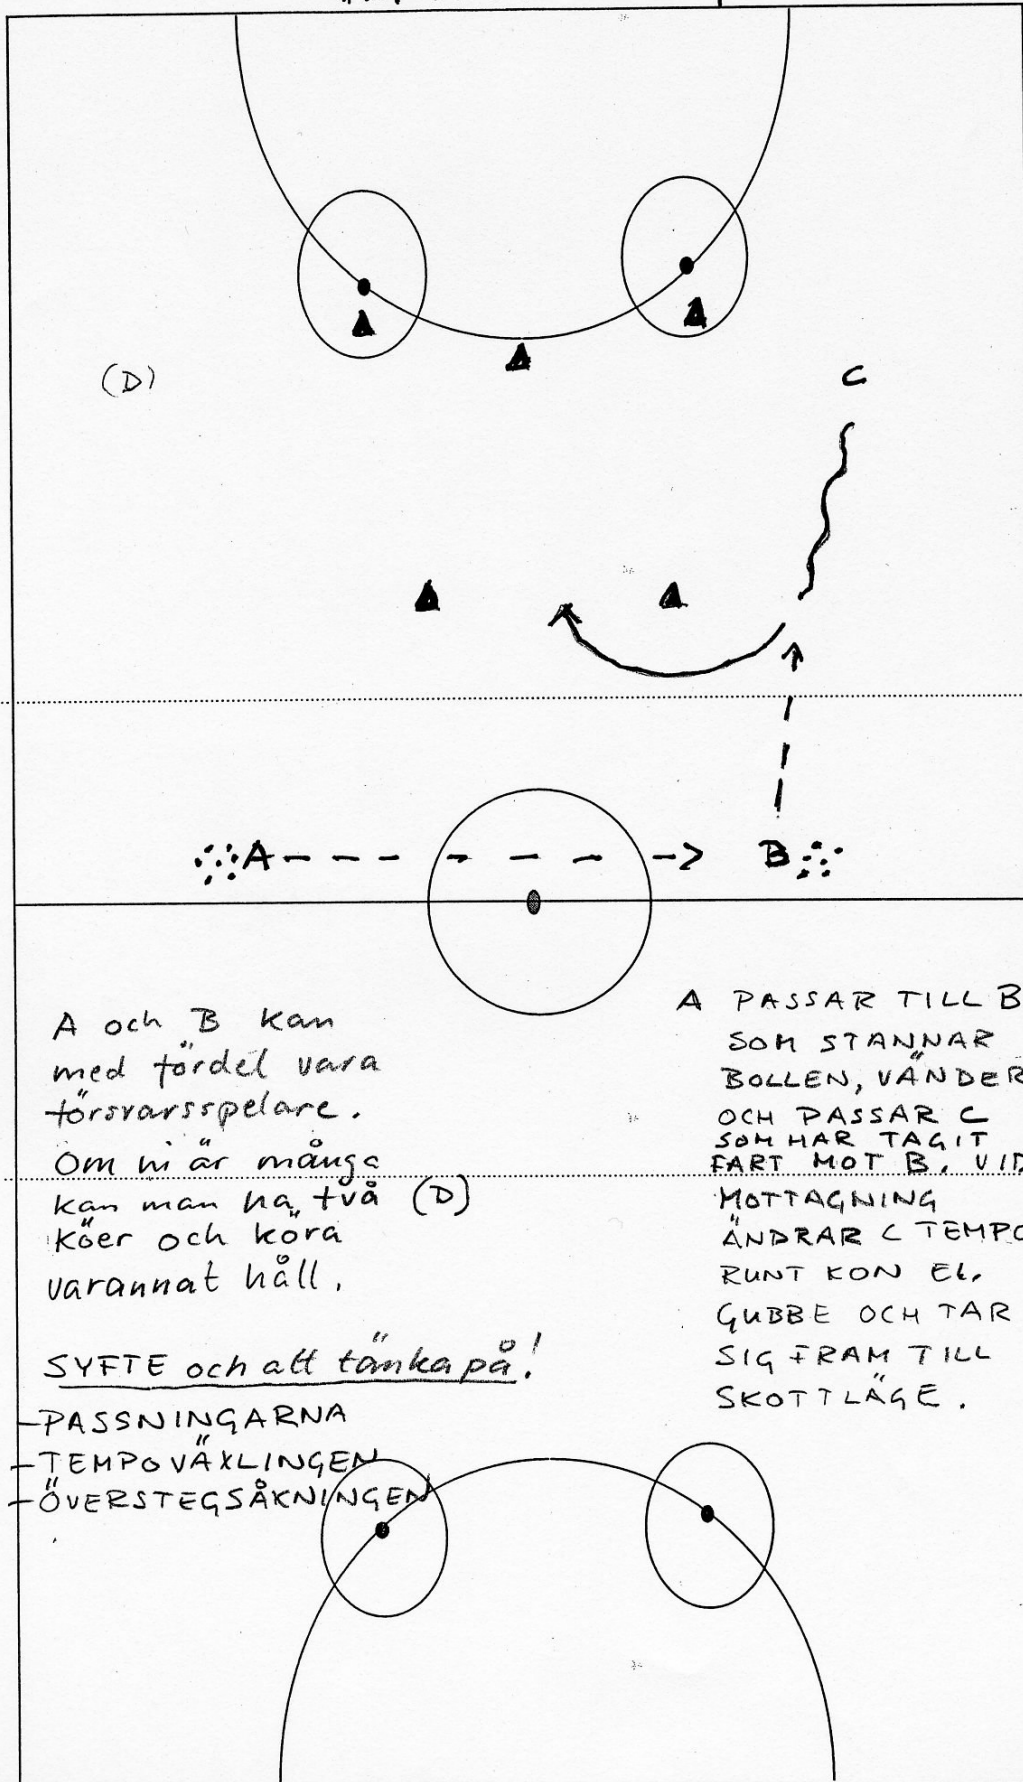 (D)
C
A
B
A och B kan
med fördel vara
försvarsspelare.
Om ni är många
kan man ha två (D)
köer och köra
varannat håll.
SYFTE och att tänka på!
- PASSNINGARNA
- TEMPOVÄXLINGEN
- ÖVERSTEGSÅKNINGEN
A PASSAR TILL B
SOM STANNAR
BOLLEN, VÄNDER
OCH PASSAR C
SOM HAR TAGIT
FART MOT B. VID
MOTTAGNING
ÄNDRAR C TEMPO
RUNT KON EL.
GUBBE OCH TAR
SIG FRAM TILL
SKOTTLÄGE.